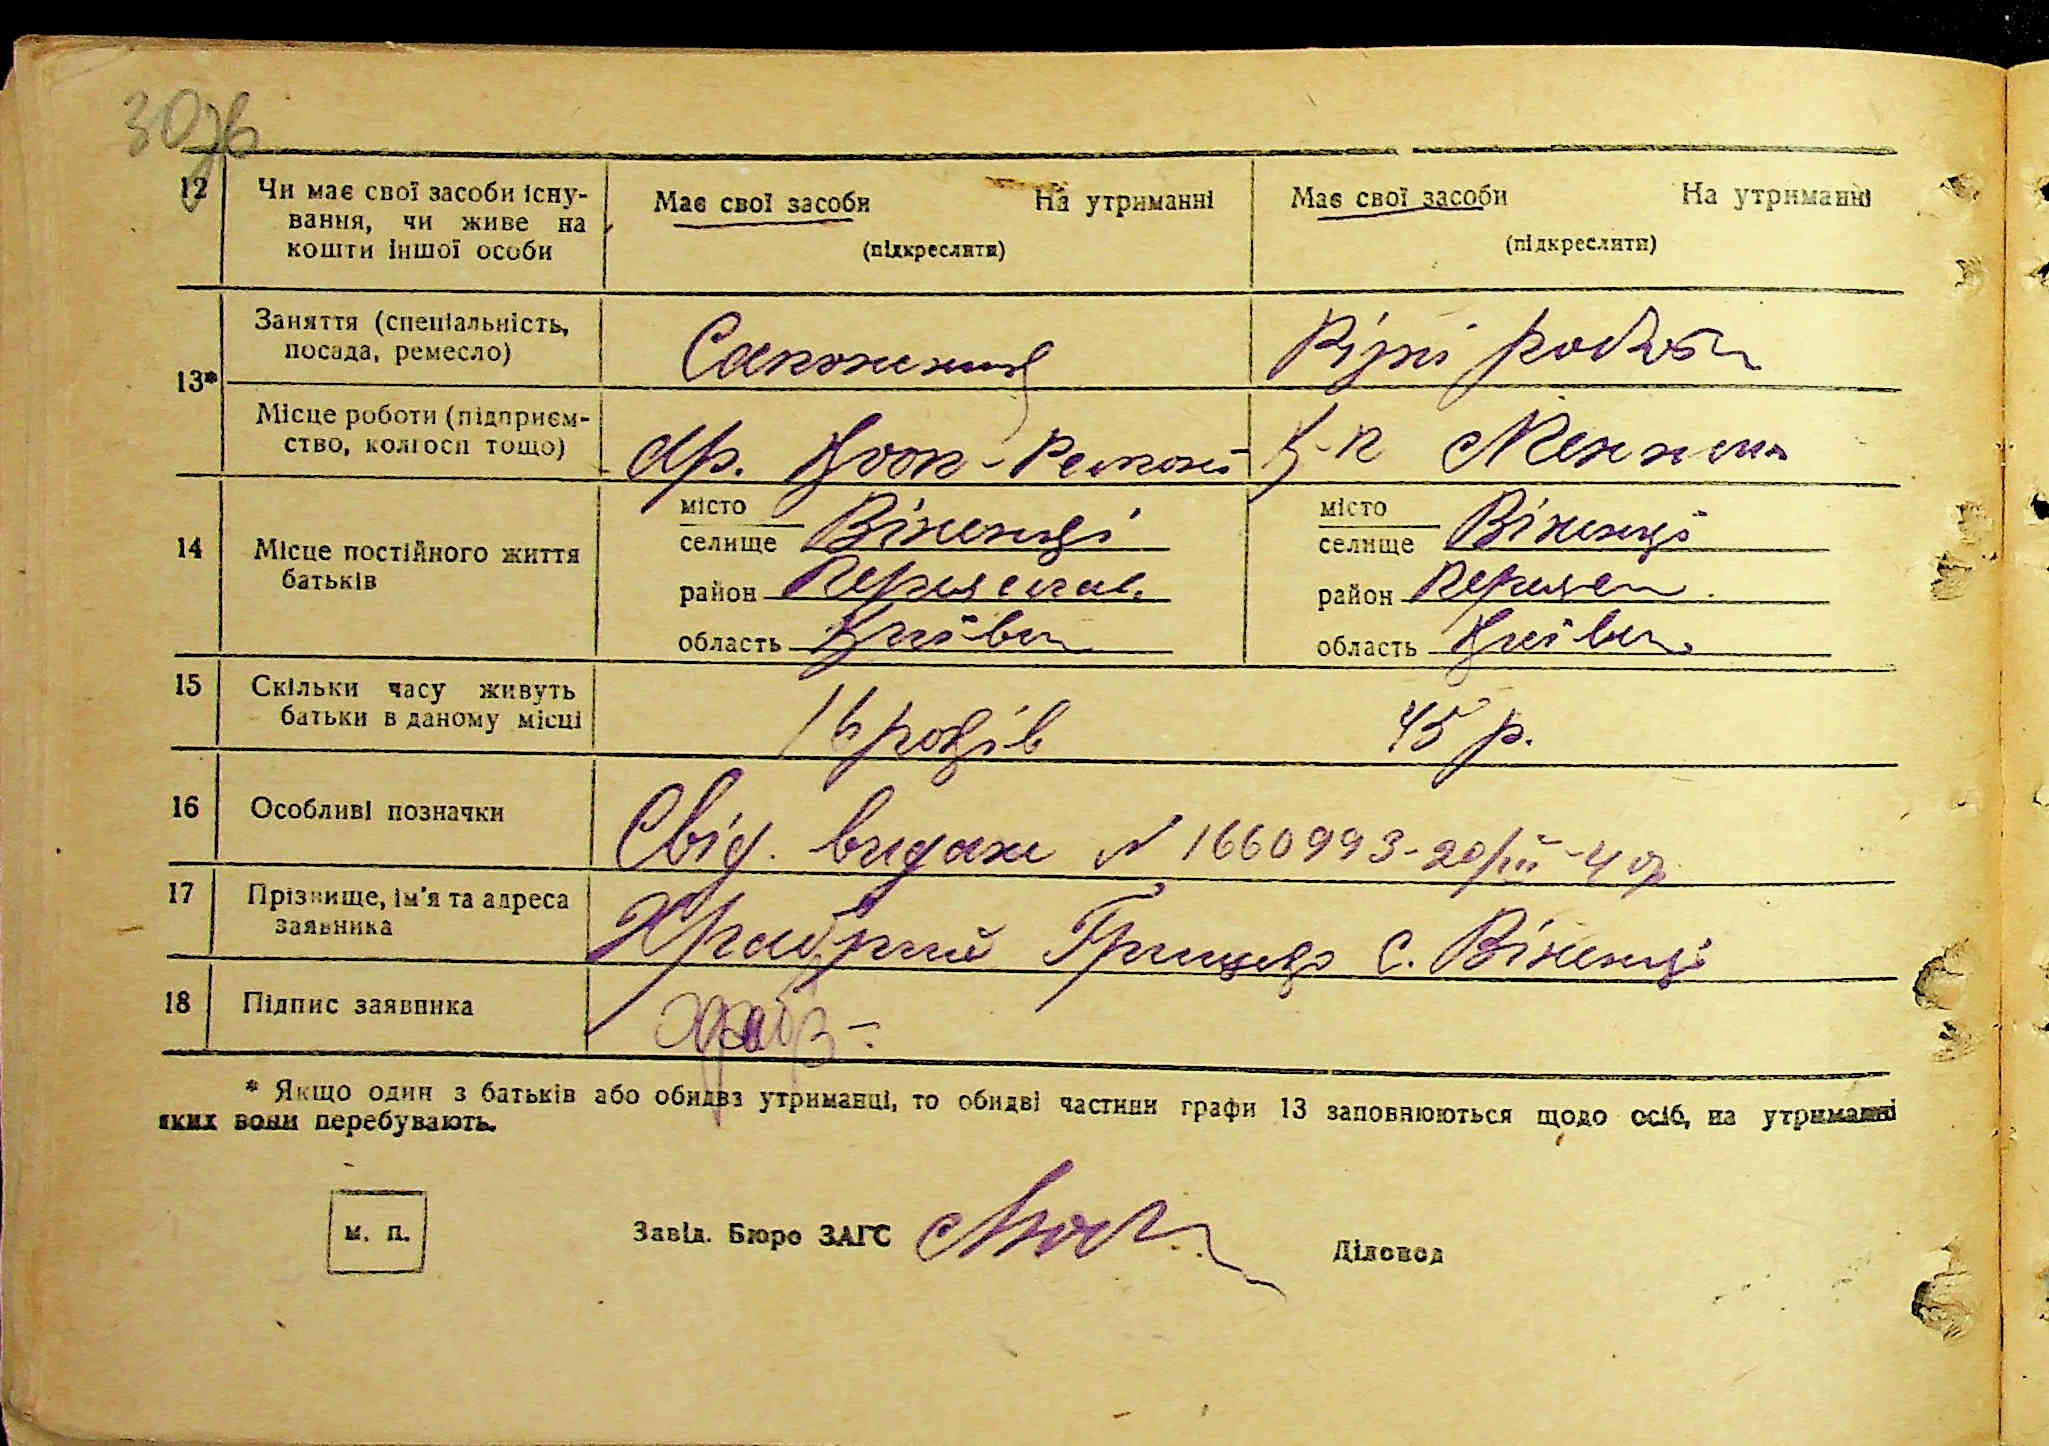 30зв
12 Чи має свої засоби існу- Має свої засоби На утриманні Має свої засоби На утриманні
вання, чи живе на
кошти іншої особи (підкреслити) (підкреслити)
Заняття (спеціальність, Сапожник Різні роботи
посада, ремесло)
13*
Місце роботи (підприєм- Кооп-Ремонт К-п
ство, колгосп тощо)
місто місто
14 Місце постійного життя селище Віненці селище Віненці
батьків район Переяслав. район Переясл
область Київськ область Київськ.
15 Скільки часу живуть 16 років 45 р.
батьки в даному місці
16 Особливі позначки Свід. видан № 1660993-20/III-40р
17 Прізвище, ім'я та адреса Храбрий Грицько с. Віненці
заявника
18 Підпис заявника
* Якщо один з батьків або обидва утриманці, то обидві частини графи 13 заповнюються щодо осіб, на утриманні
яких вони перебувають.
м. п. Завід. Бюро ЗАГС Діловод